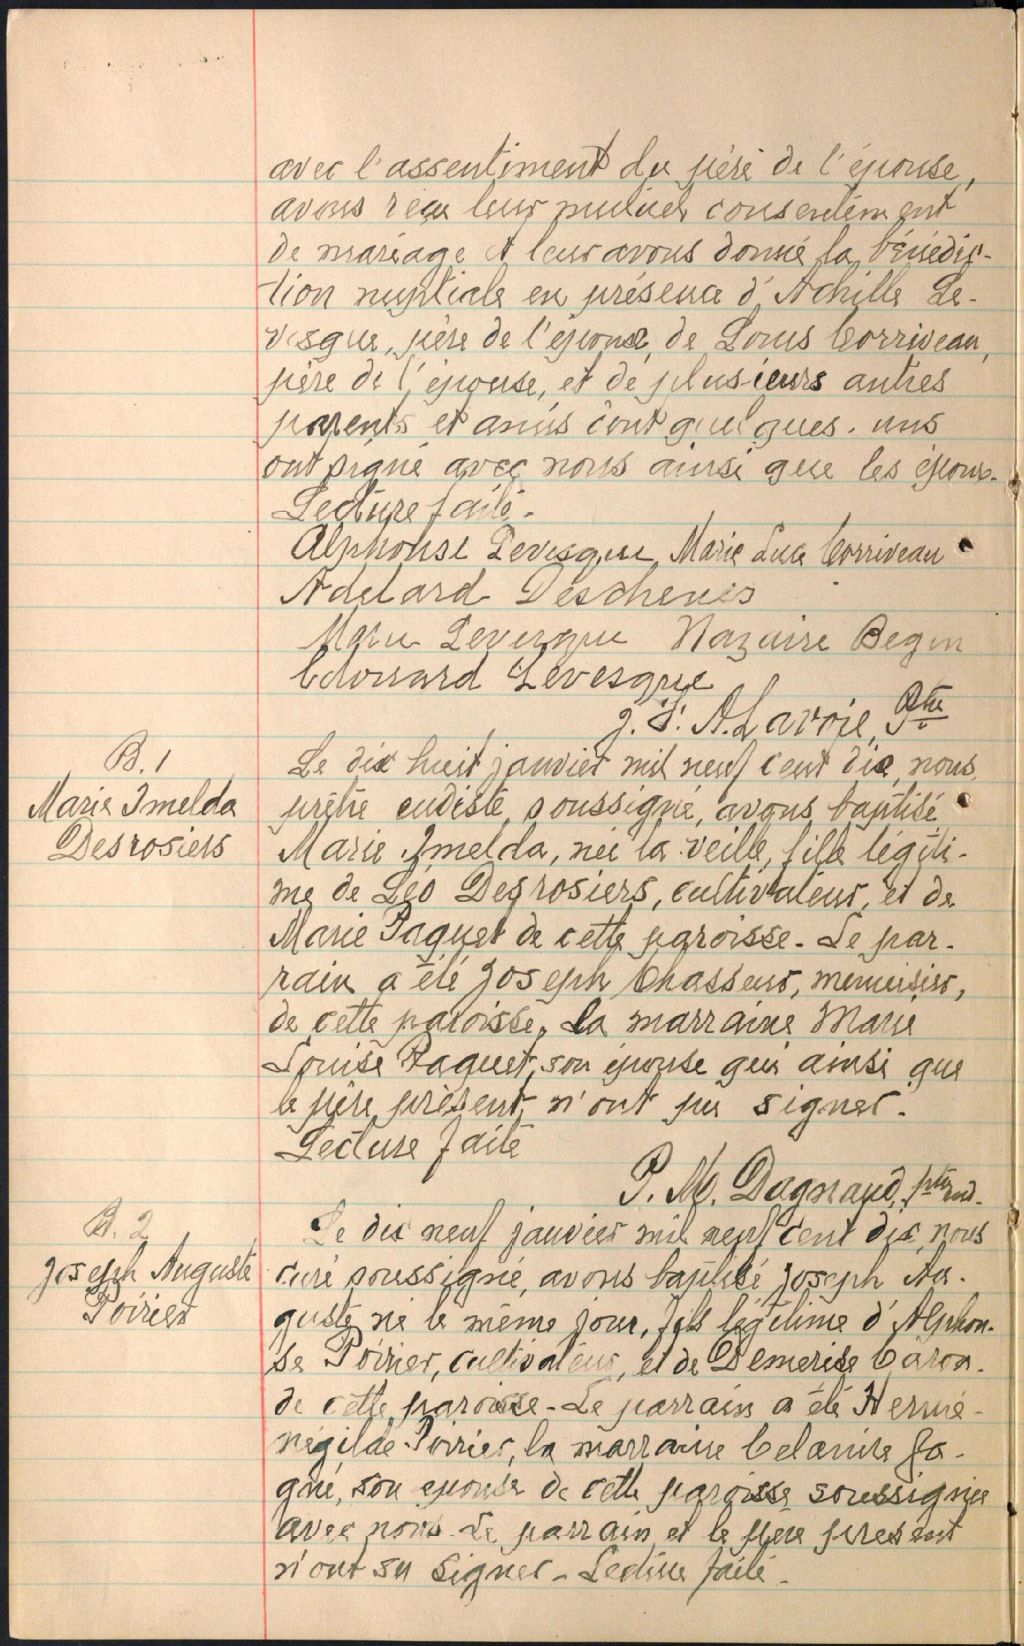 avec l'assentiment du père de l'épouse,
avons reçu leur mutuel consentement
de mariage et leur avons donné la bénédic-
tion nuptiale en présence d'Achille Le-
vesque, père de l'époux, de Louis Corriveau,
père de l'épouse, et de plusieurs autres
parents et amis dont quelques-uns
ont signé avec nous ainsi que les époux.
Lecture faite.
Alphonse Levesque Marie Luce Corriveau
Adelard Deschenes
Marie Levesque Nazaire Begin
Edouard Levesque
J. S. A. Lavoie, Ptre
B. 1
Marie Imelda
Desrosiers
Le dix huit janvier mil neuf cent dix, nous
prêtre eudiste, soussigné, avons baptisé
Marie Imelda, née la veille, fille légiti-
me de Léo Desrosiers, cultivateur, et de
Marie Paquet de cette paroisse. Le par-
rain a été Joseph Chasseur, menuisier,
de cette paroisse, la marraine Marie
Louise Paquet, son épouse qui ainsi que
le père présent, n'ont pu signer.
Lecture faite
P. M. Dagnaud, ptre eud.
B. 2
Joseph Auguste
Poirier
Le dix neuf janvier mil neuf cent dix, nous
curé soussigné, avons baptisé Joseph Au-
guste né le même jour, fils légitime d'Alphon-
se Poirier, cultivateur, et de Demerise Caron
de cette paroisse - Le parrain a été Hermé-
négilde Poirier, la marraine Celanire Ga-
gné, son épouse de cette paroisse soussignée
avec nous. Le parrain et le père présent
n'ont su signer - Lecture faite.